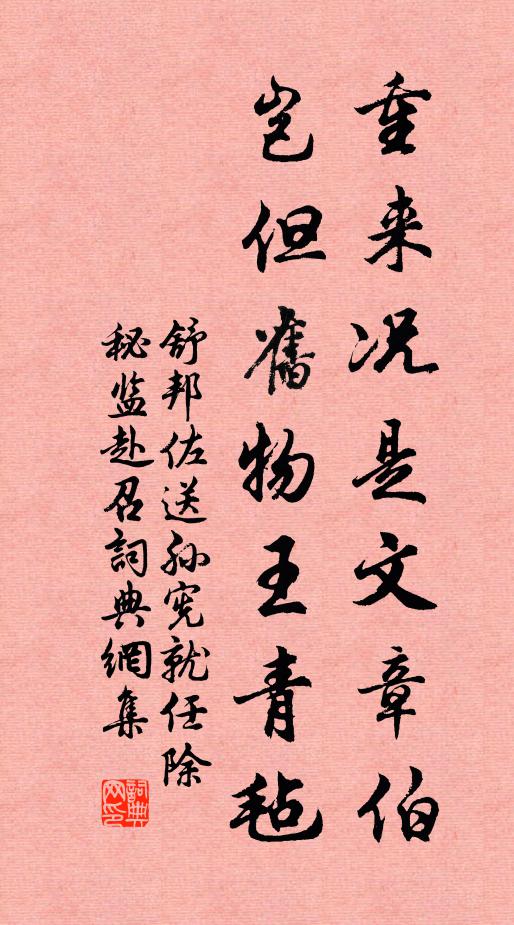 重来況是文章伯
岂但舊物王青毡
舒邦佐送孙宪就任除
秘监赴召詞典網集
詞典网印